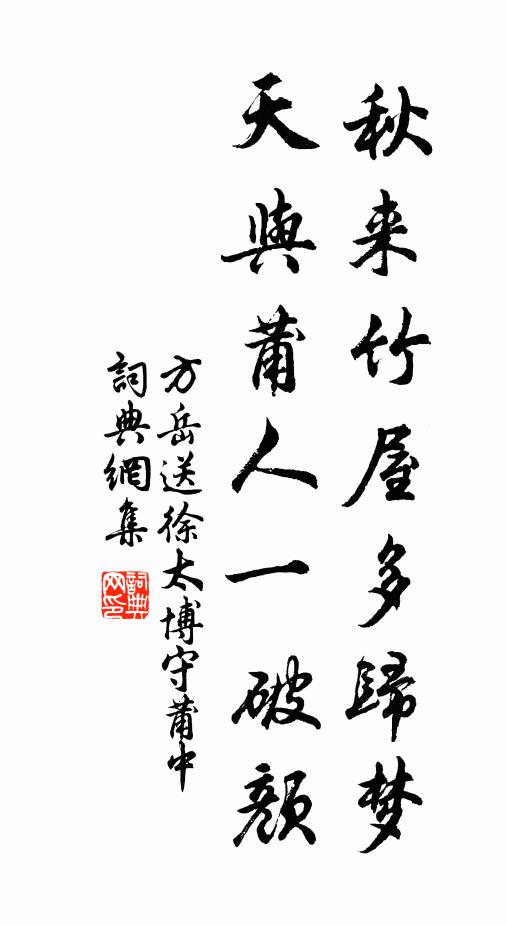 秋来竹屋多歸梦
天與莆人一破顔
方岳送徐太博守莆中
詞典網集
詞典网印